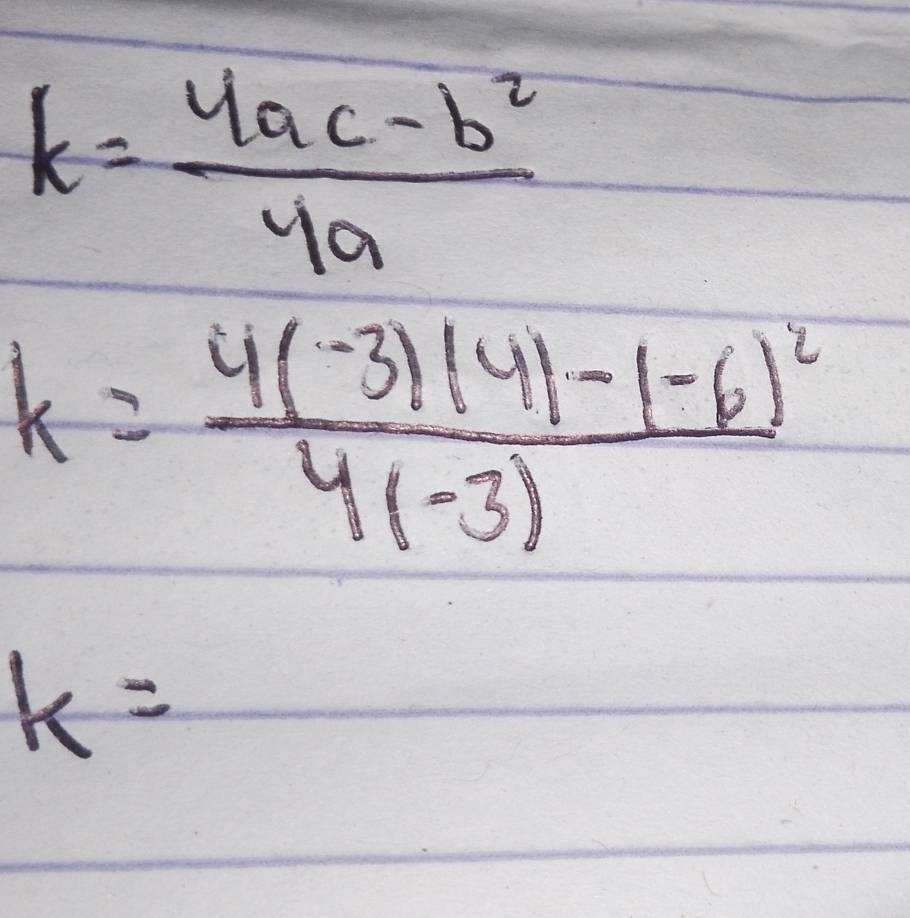 k = \frac{4ac - b^2}{4a}
k = \frac{4(-3)(4) - (-6)^2}{4(-3)}
k =